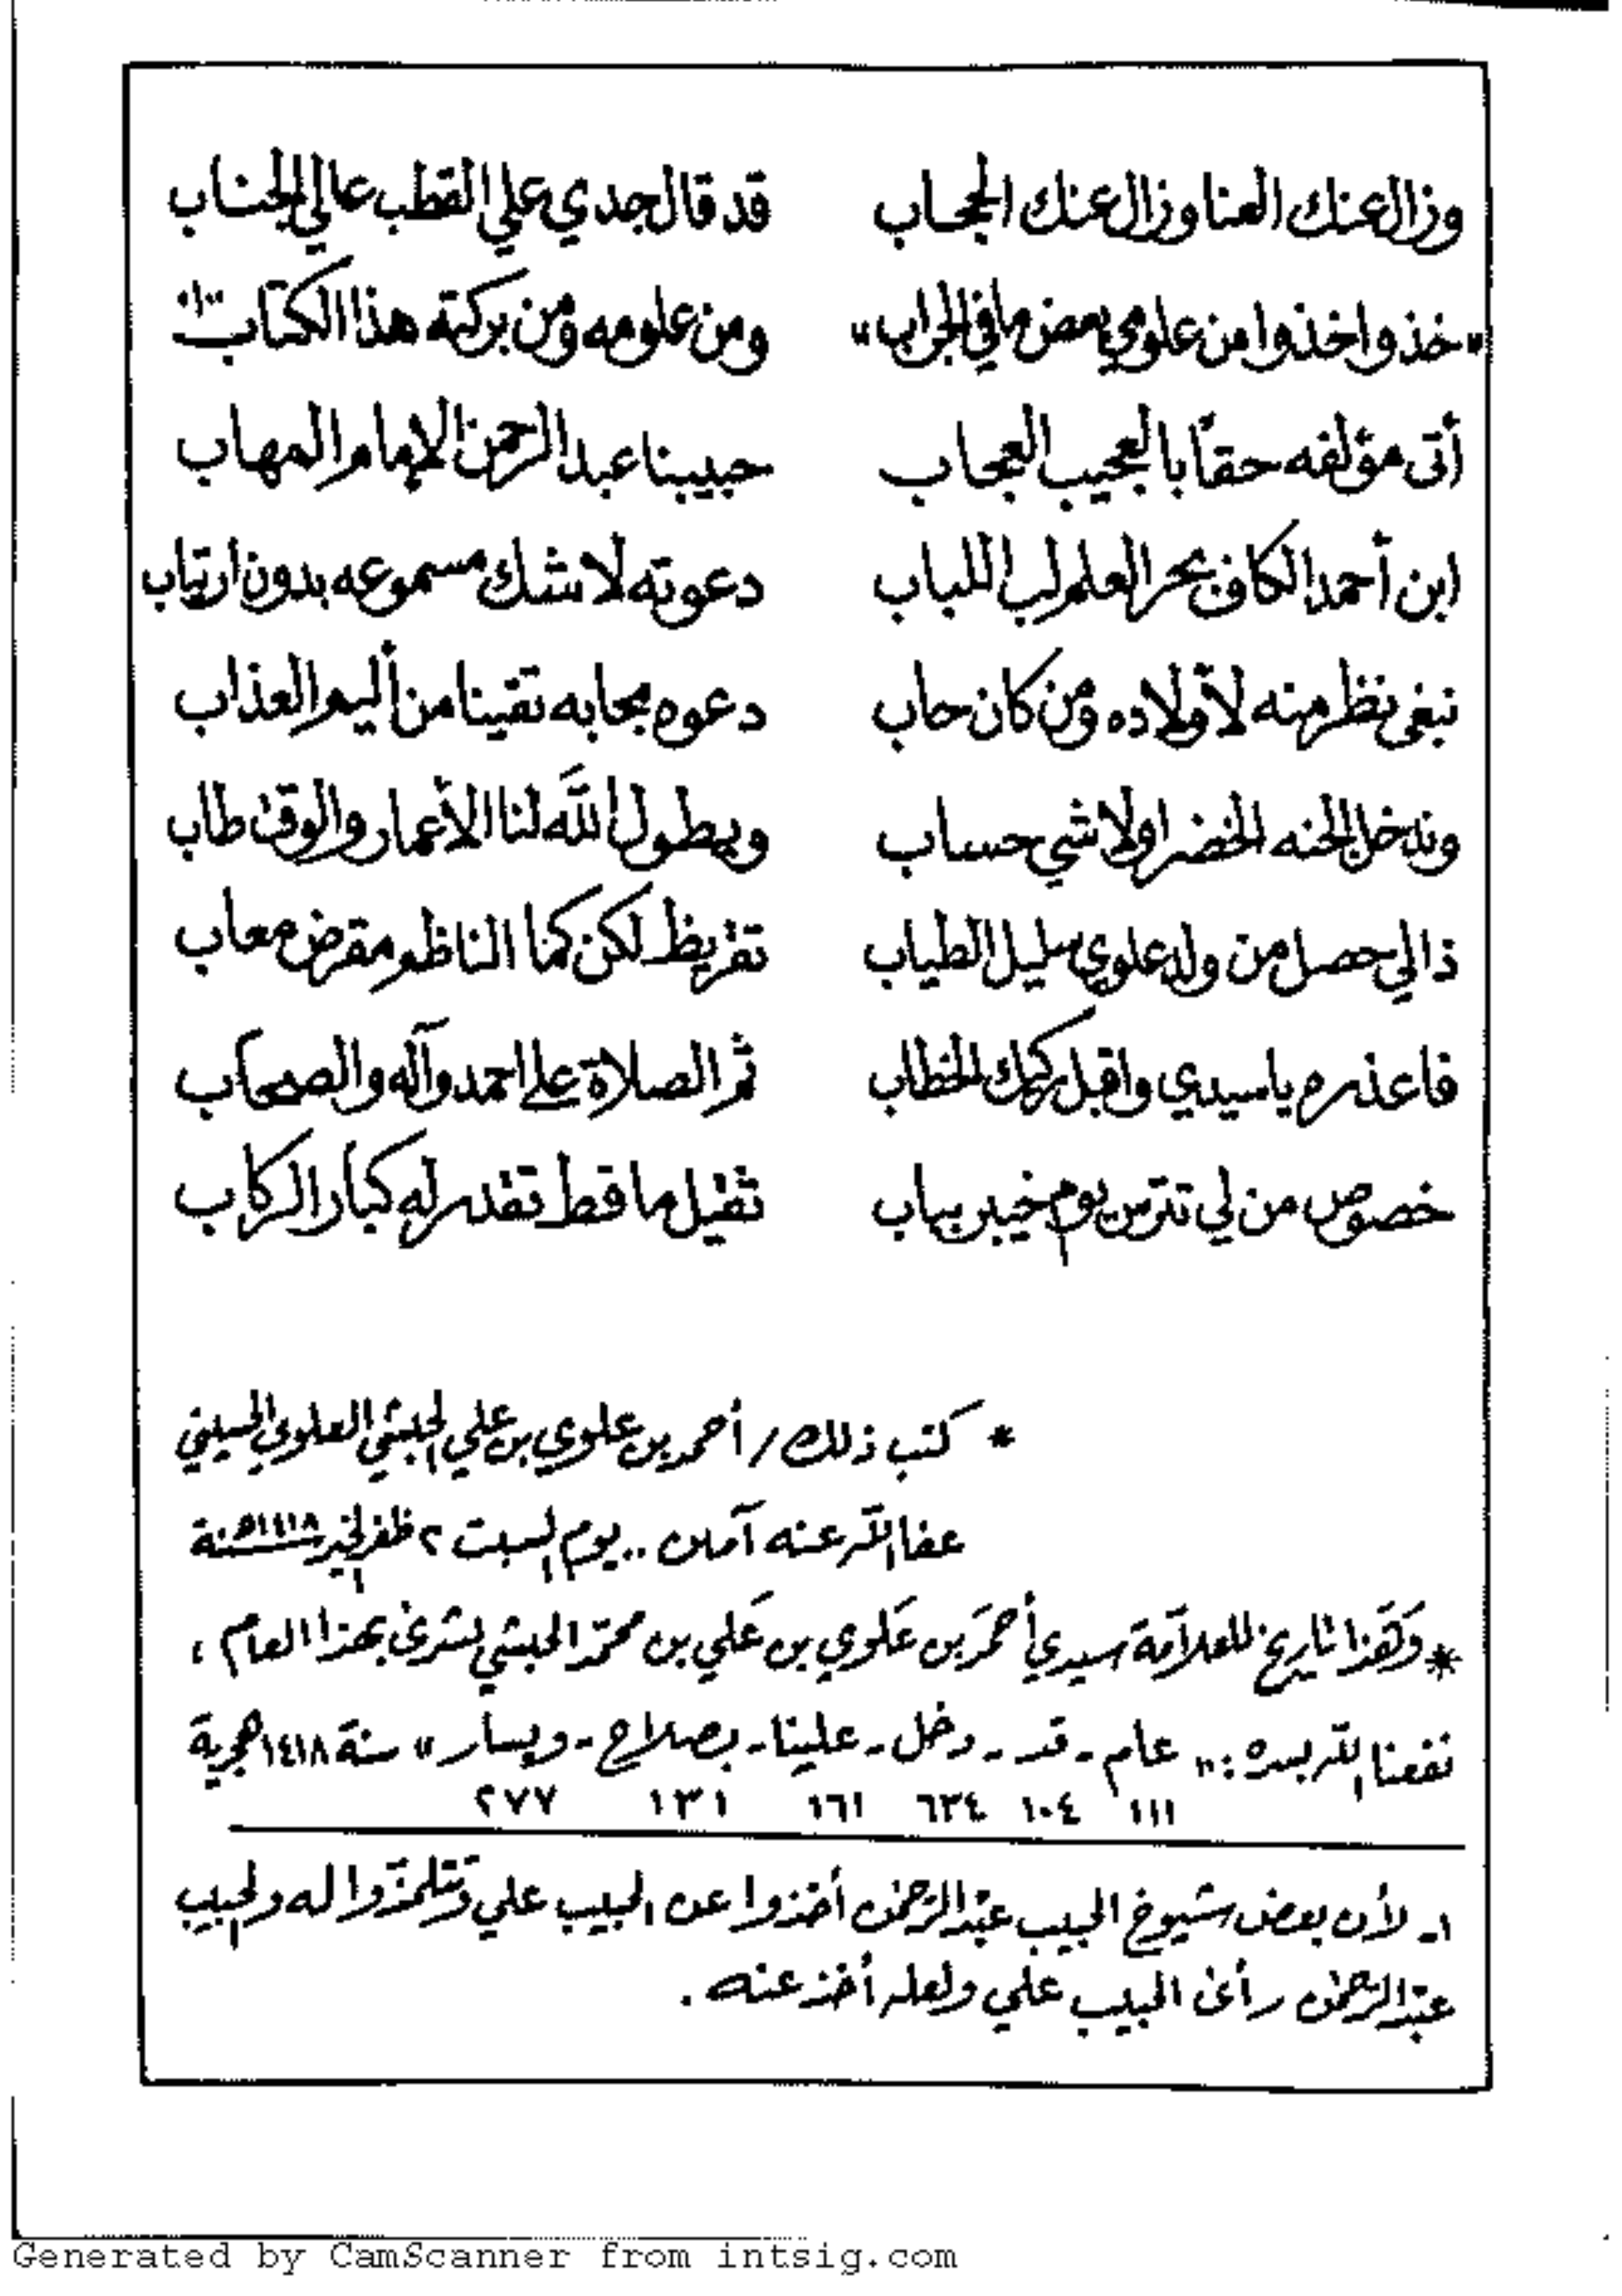 وزال عنك العنا وزال عنك الحجاب قد قال جدي علي القطب عالي الجناب
"خذوا خذوا من علومي بعض ما في الجراب" ومن علومه ومن بركته هذا الكتاب (١)
أتى مؤلفه حقًا بالعجيب العجاب حبيبنا عبد الرحمن الإمام المهاب
ابن أحمد الكاف بحر العلم لب اللباب دعوته لا شك مسموعه بدون ارتياب
نبغى نظر منه لاولاده ومن كان حاب دعوه مجابه تقينا من أليم العذاب
وندخل الجنه الخضرا ولا شي حساب ويطول الله لنا الأعمار والوقت طاب
ذا لي حصل من ولد علوي سليل الطياب تقريظ لكن كما الناظم مقرض معاب
فاعذره يا سيدي واقبل ركيك الخطاب ثم الصلاة على احمد وآله والصحاب
خصوص من لي تترس يوم خيبر بباب ثقيل ما قط تقدر له كبار الركاب
* كتب ذلك / أحمد بن علوي بن علي الحبشي العلوي الحسيني
عفا الله عنه آمين .. يوم السبت ٢ ظفر الخير سنة ١٤١٨هـ
* وهذا تاريخ للعلامة سيدي أحمد بن علوي بن علي بن محمد الحبشي لشرف بهذا العام ،
نفعنا الله بسره : " عام - قد - دخل - علينا - بصلاح - ويسار " سنة ١٤١٨ هجرية
١١١ ١٠٤ ٦٣٤ ١٦١ ١٣١ ٢٧٧
١- لأن بعض شيوخ الحبيب عبد الرحمن أخذوا عن الحبيب علي وتتلمذوا له والحبيب
عبد الرحمن رأى الحبيب علي ولعله أخذ عنه .
Generated by CamScanner from intsig.com